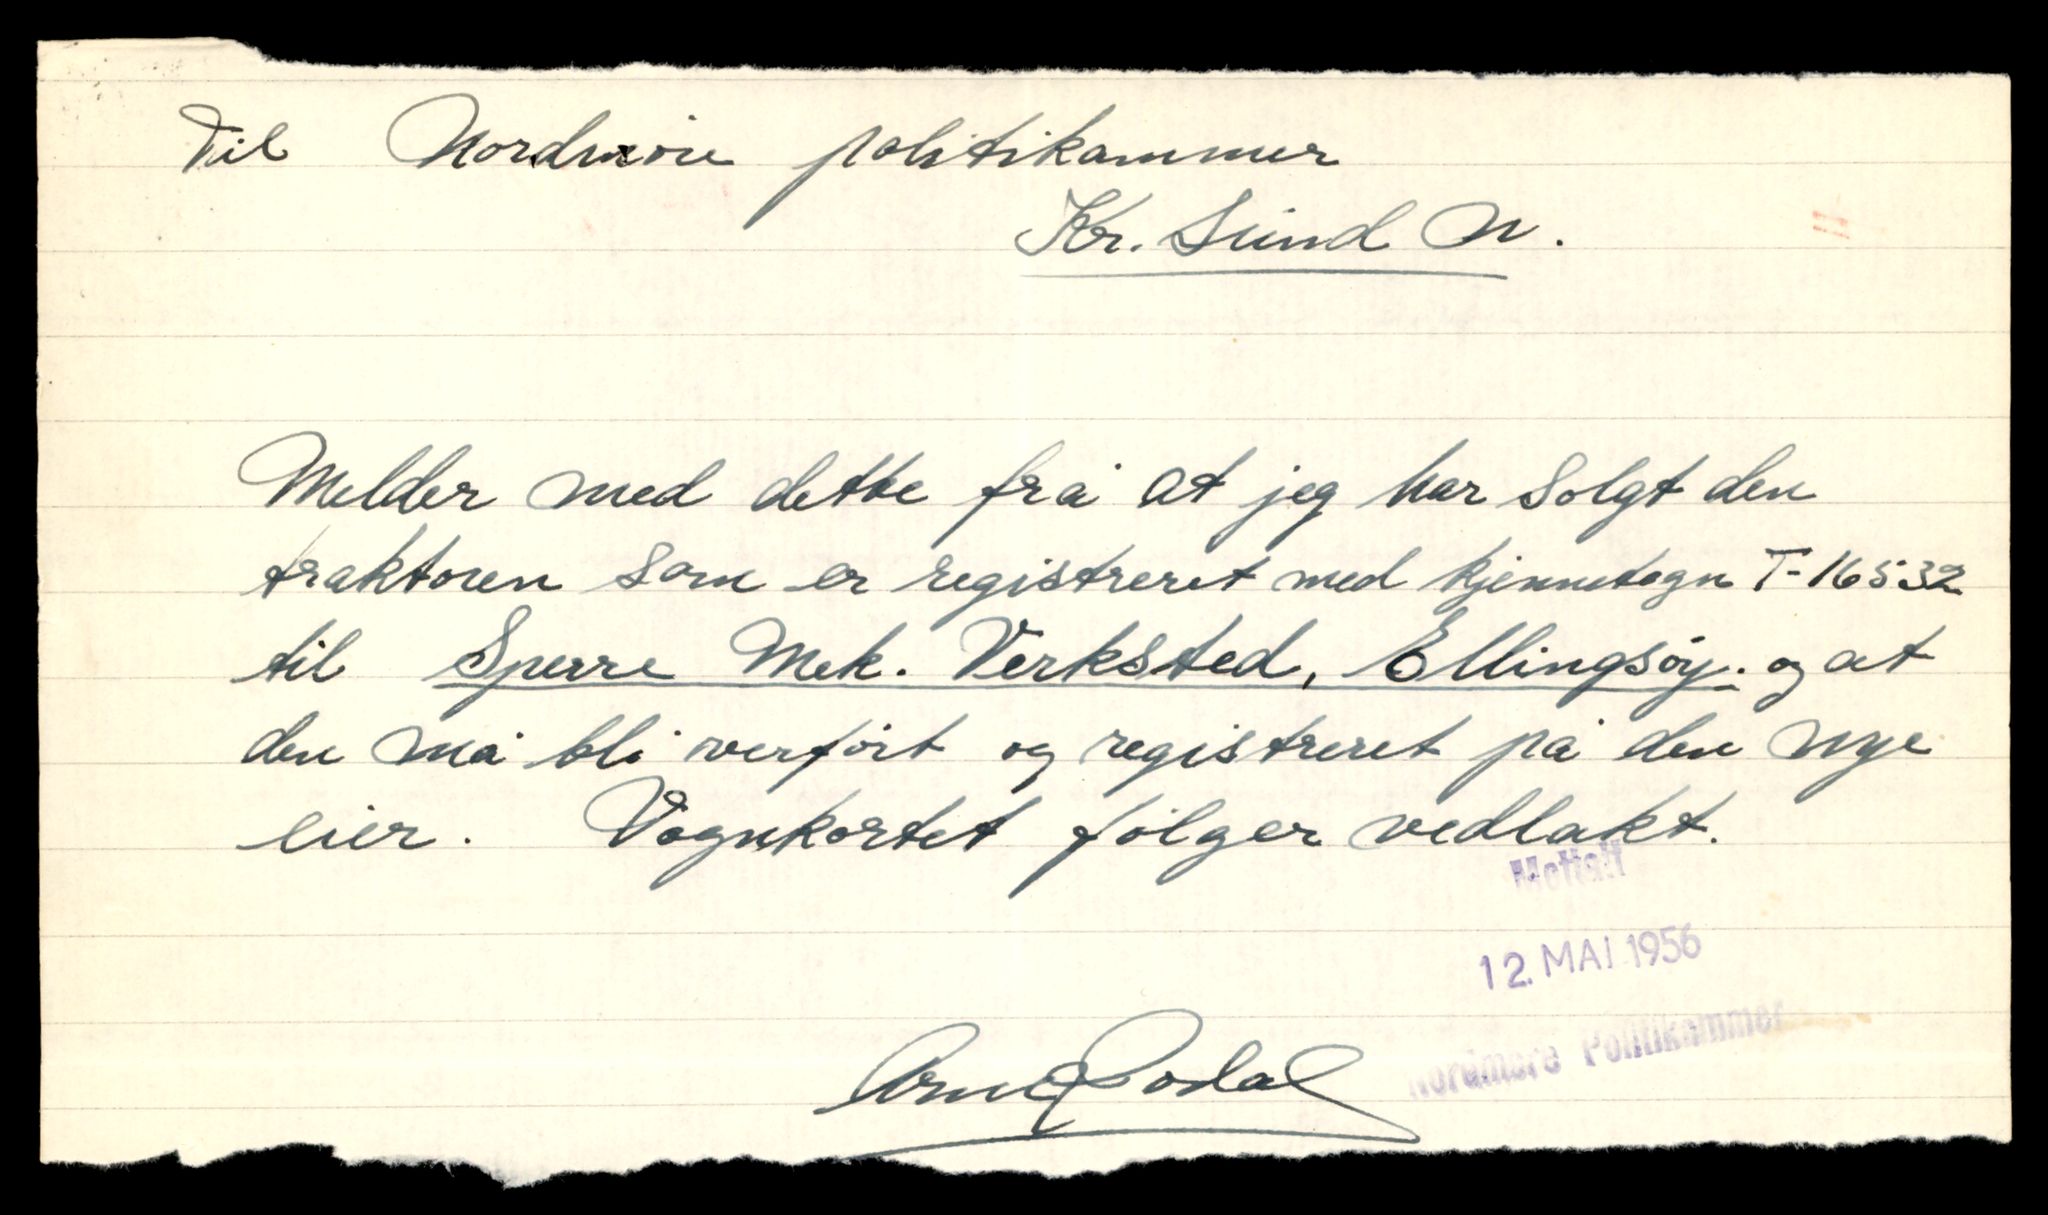 Til Nordmøre politikammer
Kr. Sund N.
Melder med dette frå at jeg har solgt den
traktoren som er registreret med kjennetegn T-16532
til Sperre Mek. Verksted, Ellingsøy. og at
den må bli overført og registreret på den nye
eier. Vognkortet følger vedlakt.
Mottatt
12. MAI 1956
Nordmøre Politikammer
Arne Dodal